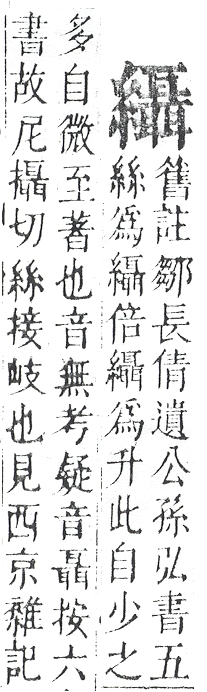 䌰舊註鄒長倩遺公孫弘書五
絲爲䌰倍䌰爲升此自少之
多自微至著也音無考疑音聶按六
書故尼攝切絲接岐也見西京雜記